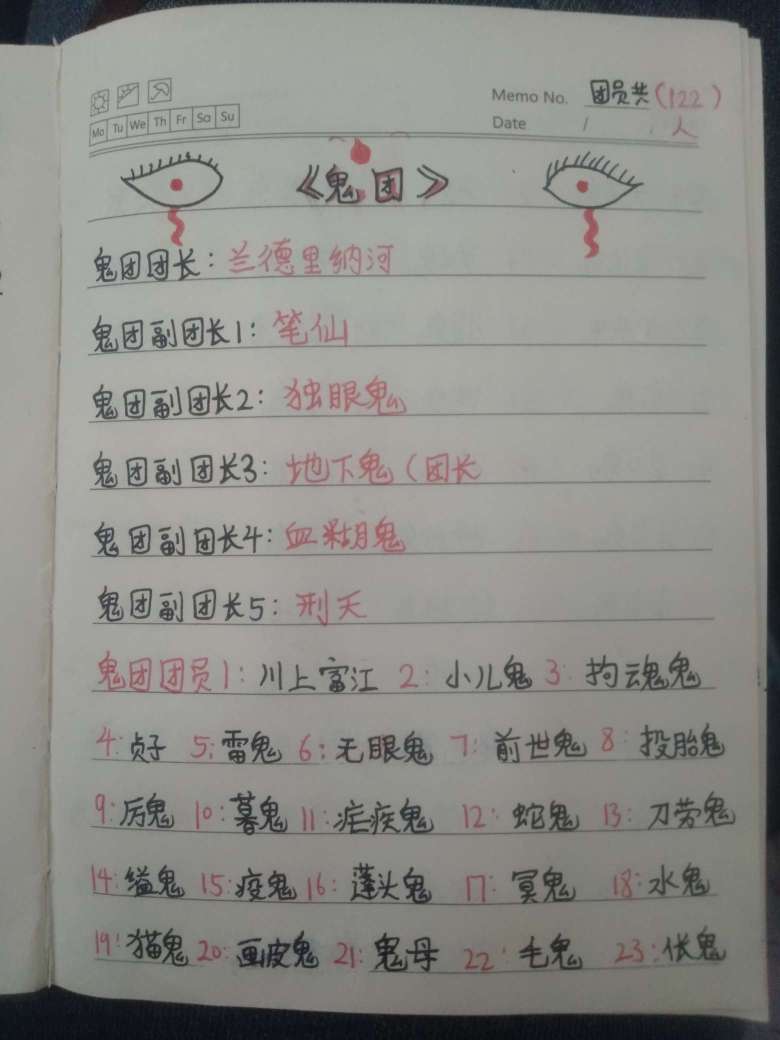 Memo No. 团员共(122)
Mo Tu We Th Fr Sa Su
Date / / 人
《鬼团》
鬼团团长:兰德里纳河
鬼团副团长1:笔仙
鬼团副团长2:独眼鬼
鬼团副团长3:地下鬼(团长
鬼团副团长4:血糊鬼
鬼团副团长5:刑天
鬼团团员1:川上富江 2:小儿鬼 3:拘魂鬼
4:贞子 5:雷鬼 6:无眼鬼 7:前世鬼 8:投胎鬼
9:厉鬼 10:暮鬼 11:疟疾鬼 12:蛇鬼 13:刀劳鬼
14:缢鬼 15:疫鬼 16:蓬头鬼 17:冥鬼 18:水鬼
19:猫鬼 20:画皮鬼 21:鬼母 22:毛鬼 23:伥鬼